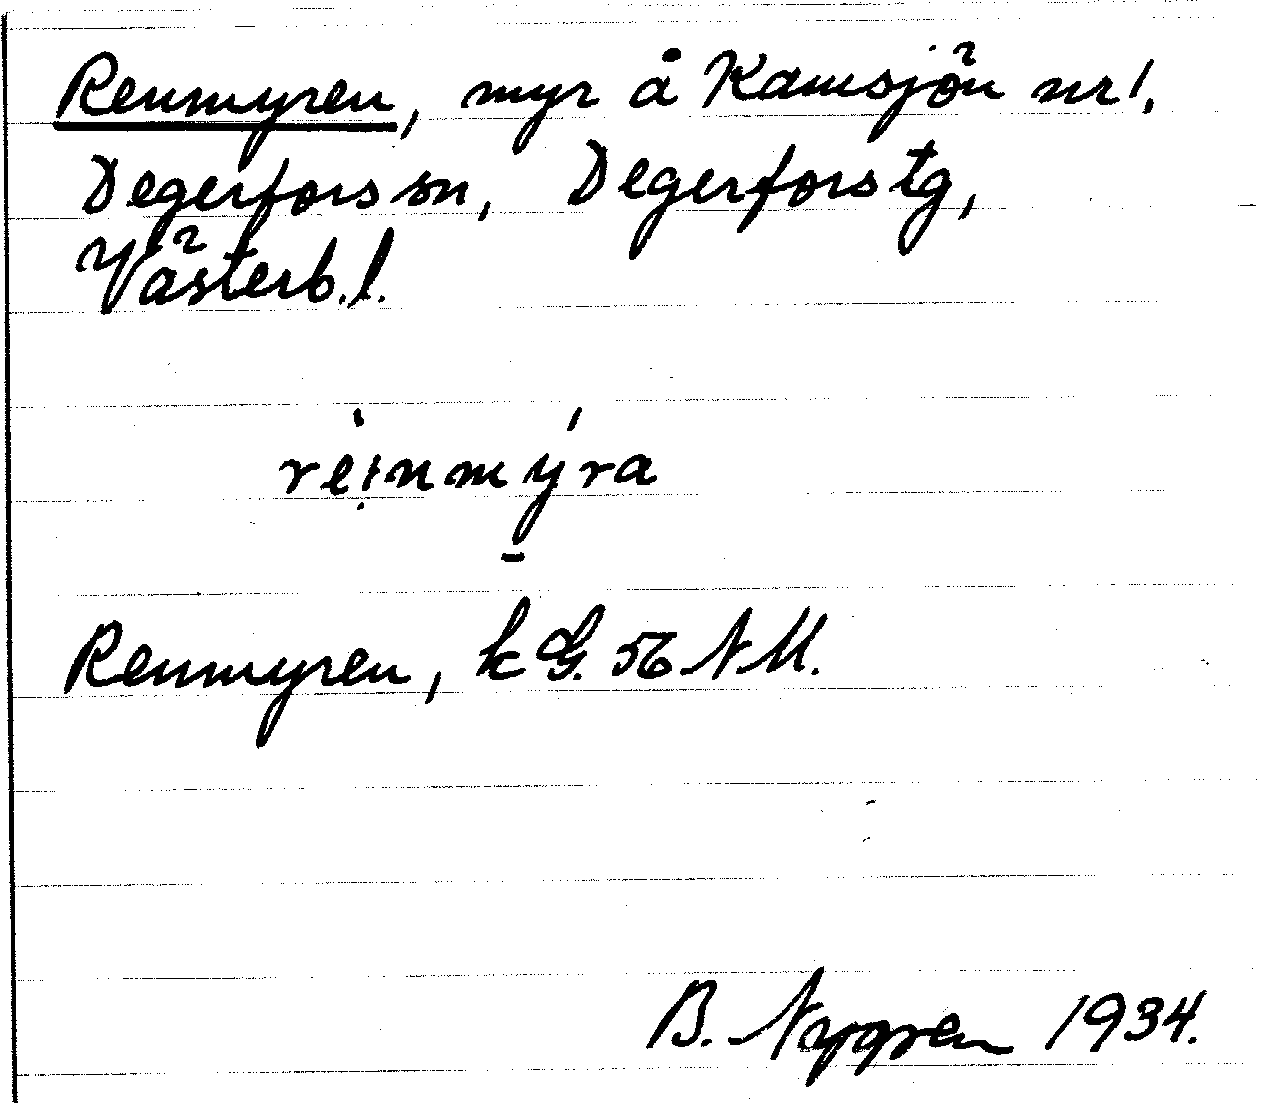 Renmyren, myr å Kamsjön nr 1.
Degerfors sn, Degerfors tg,
Västerb.l.
reinmyra
Renmyren, k G. 56 N M.
B. Nygren 1934.